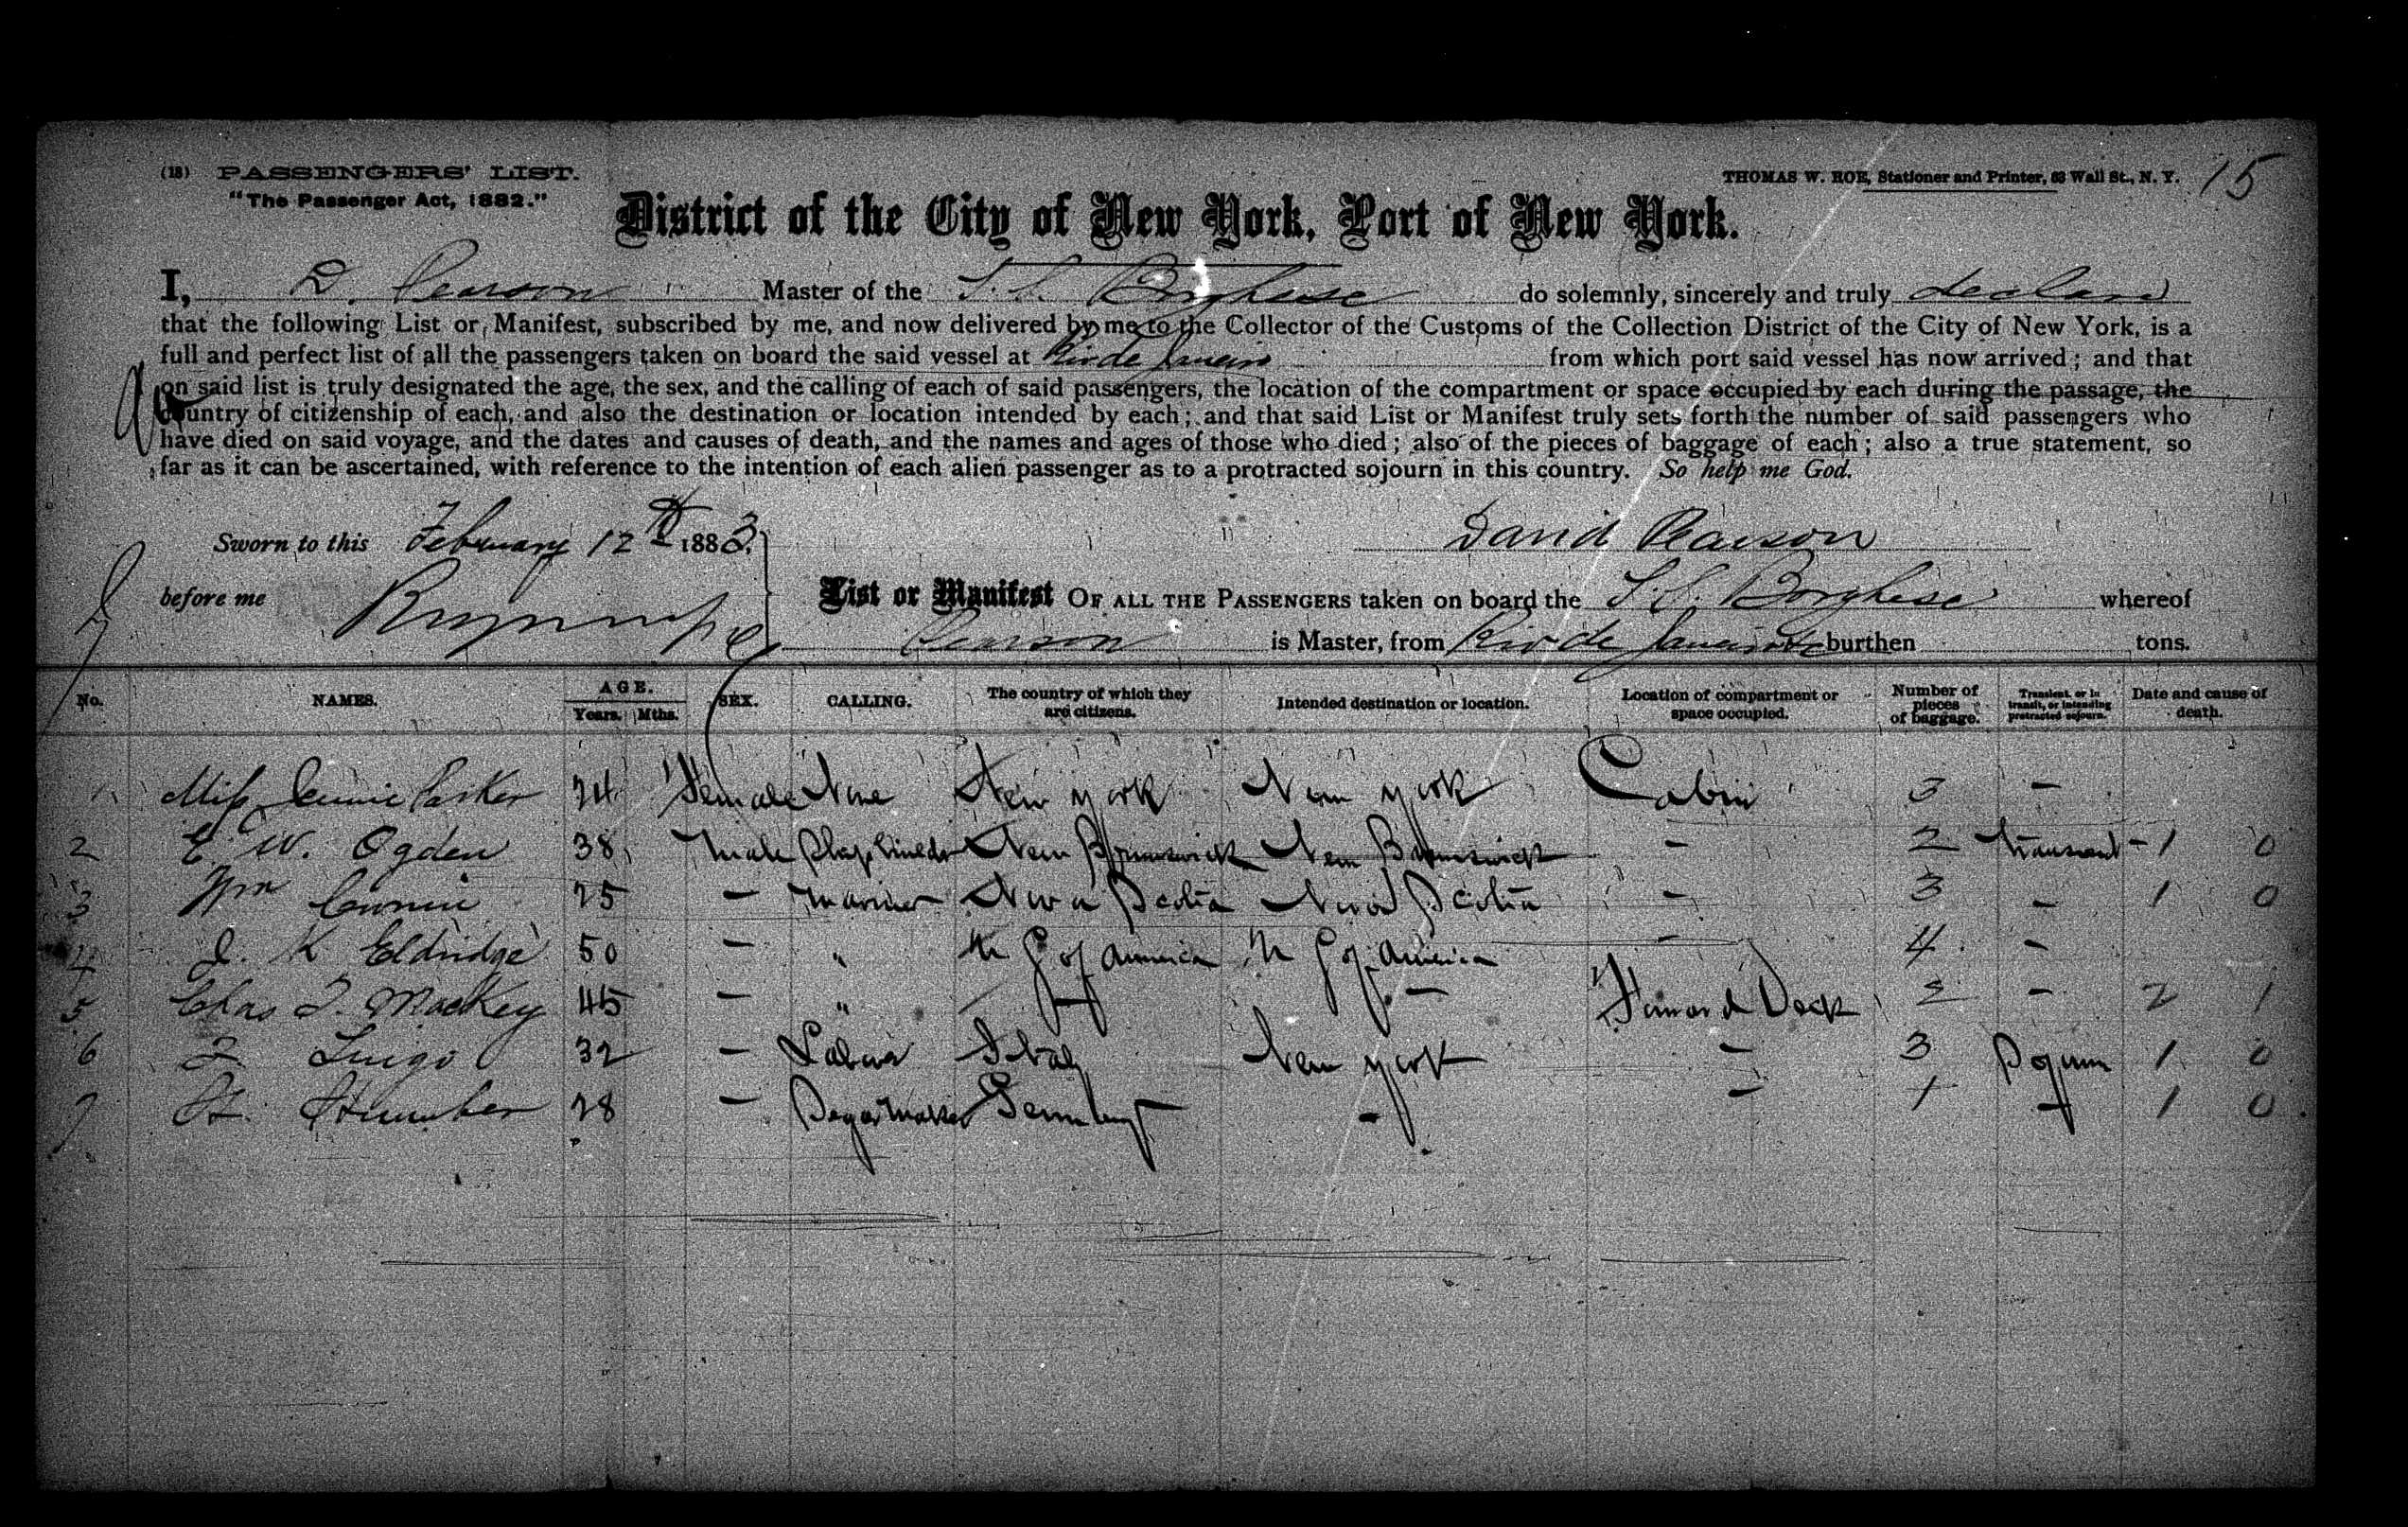 (18) PASSENGERS' LIST.
"The Passenger Act, 1882."
THOMAS W. ROE, Stationer and Printer, 63 Wall St., N. Y. 15
District of the City of New York, Port of New York.
I, D. Pearson Master of the S. S. Borghese do solemnly, sincerely and truly declare
that the following List or Manifest, subscribed by me, and now delivered by me to the Collector of the Customs of the Collection District of the City of New York, is a
full and perfect list of all the passengers taken on board the said vessel at Rio de Janeiro from which port said vessel has now arrived; and that
on said list is truly designated the age, the sex, and the calling of each of said passengers, the location of the compartment or space occupied by each during the passage, the
country of citizenship of each, and also the destination or location intended by each; and that said List or Manifest truly sets forth the number of said passengers who
have died on said voyage, and the dates and causes of death, and the names and ages of those who died; also of the pieces of baggage of each; also a true statement, so
far as it can be ascertained, with reference to the intention of each alien passenger as to a protracted sojourn in this country. So help me God.
Sworn to this February 12th 1883. David Pearson
before me
List or Manifest OF ALL THE PASSENGERS taken on board the S. S. Borghese whereof
Pearson is Master, from Rio de Janeiro burthen tons.
No. NAMES. AGE. Years. Mths. SEX. CALLING. The country of which they are citizens. Intended destination or location. Location of compartment or space occupied. Number of pieces of baggage. Transient, or in transit, or intending protracted sojourn. Date and cause of death.
1 Miss Parker 24 Female None New York New York Cabin 3 –
2 E. W. Ogden 38 Male New Brunswick New Brunswick – 2 Transient – 1 0
3 Wm 25 – Mariner Nova Scotia Nova Scotia – 3 – 1 0
4 J. K Eldridge 50 – " U S of America U S of America – 4 –
5 Chas T. Mackey 45 – " – – Forward Deck 2 – 2 1
6 Luigi 32 – Labour Italy New York – 3 Sojurn 1 0
7 H. Humber 28 – Germany – – 1 – 1 0